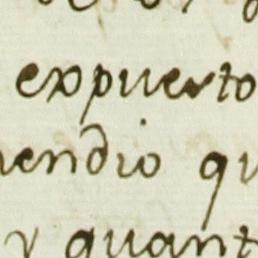 expuesto
endio qu
y quant